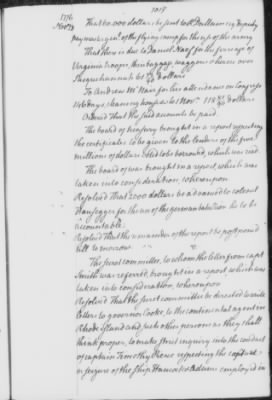 1776
Nov. 9
That 20.000 dollars be sent to Mr Dallam deputy
pay master gen.l of the flying camp for the use of the army
That there is due to Daniel Naaf for the ferriage of
Virginia troops, their baggage waggons & horses over
Susquehannah 62 dollars
To Andrew McNair for his attendance on Congress
146 days, cleaning lamps &c to 1 Nov.r 118 dollars
Ordered That the said accounts be paid.
The board of treasury brought in a report respecting
the certificates to be given to the lenders of the five
millions of dollars voted to be borrowed, which was read
The board of war brought in a report which was
taken into consideration, whereupon
Resolved That 2000 dollars be advanced to colonel
Hausegger for the use of the german battalion he to be
accountable.
Resolved That the remainder of the report be postponed
till to morrow
The secret committee, to whom the letter from capt
Smith was referred, brought in a report, which was
taken into consideration, whereupon
Resolved That the secret committee be directed to write
letters to governor Cooke, to the continental agent on
Rhode island and such other persons as they shall
think proper, to make strict inquiry into the conduct
of captain Timothy Pierce respecting the capture
or seizure of the ship Hancock & Adams employed in